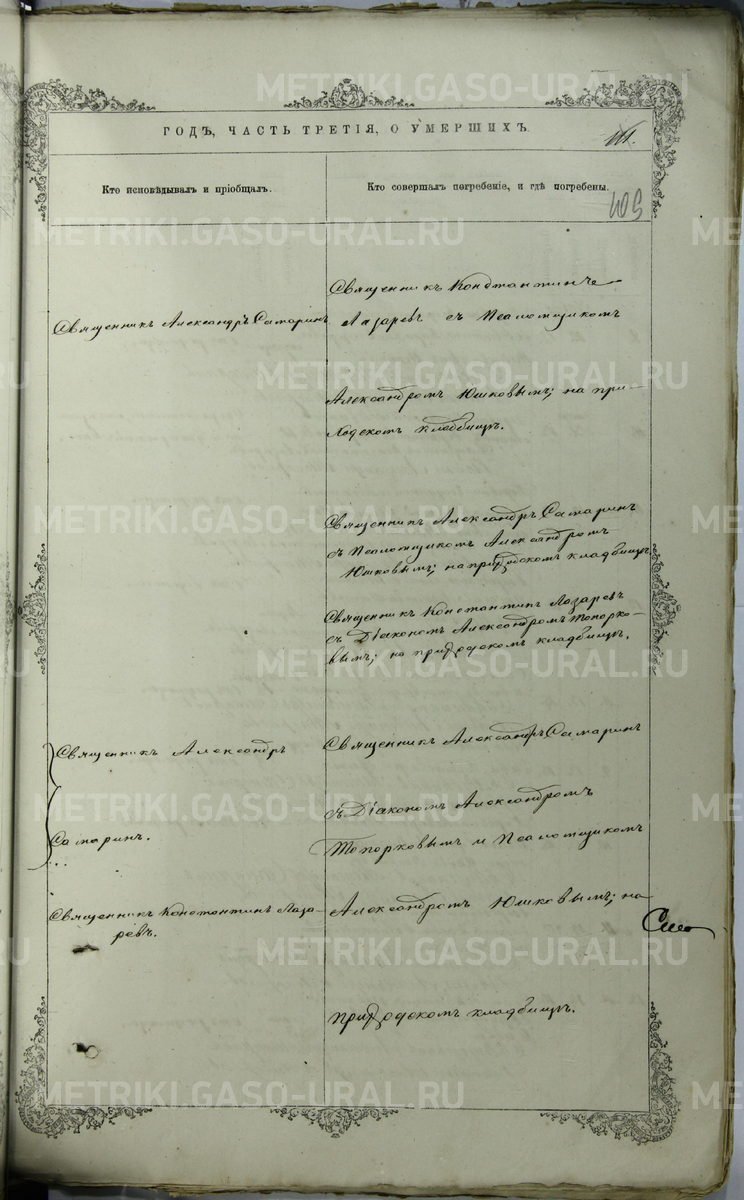 ГОДЪ, ЧАСТЬ ТРЕТІЯ, О УМЕРШИХЪ.
161.
Кто исповѣдывалъ и пріобщалъ.
Кто совершалъ погребеніе, и гдѣ погребены.
Священникъ Александръ Самаринъ
Священникъ Константинъ
Лазаревъ съ Псаломщикомъ
Александромъ Юшковымъ; на при-
ходскомъ кладбищѣ.
Священникъ Александръ Самаринъ
съ Псаломщикомъ Александромъ
Юшковымъ; на приходскомъ кладбищѣ
Священникъ Константинъ Лазаревъ
съ Діакономъ Александромъ Топорко-
вымъ; на приходскомъ кладбищѣ.
Священникъ Александръ
Самаринъ.
Священникъ Константинъ Лаза-
ревъ.
Священникъ Александръ Самаринъ
съ Діакономъ Александромъ
Топорковымъ и Псаломщикомъ
Александромъ Юшковымъ; на
приходскомъ кладбищѣ.
METRIKI.GASO-URAL.RU